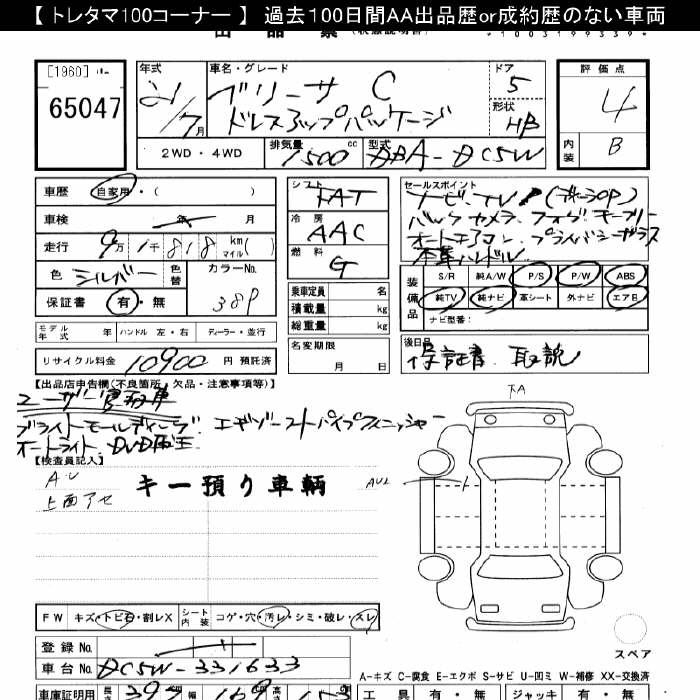 【 トレタマ100コーナー 】 過去100日間AA出品歴or成約歴のない車両
[1960]
65047
年式
21/7月
車名・グレード
ベリーサ C
ドレスアップパッケージ
ドア
5
形状
HB
評価点
4
内装
B
2WD・4WD
排気量
1500 cc
型式
DBA-DC5W
車歴 自家用・( )
車検 年 月
走行 9万 1千 818 km マイル( )
色 シルバー 色替 カラーNo. 38P
保証書 有・無
モデル年式 年 ハンドル 左・右 ディーラー・並行
リサイクル料金 10900 円 預託済
シフト
IAT
冷房
AAC
燃料
G
乗車定員 名
積載量 kg
総重量 kg
名変期限
月 日
セールスポイント
ナビ、TV
バックカメラ、フォグ、キーフリー
オートエアコン、プライバシーガラス
本革ハンドル
装備品
S/R 純A/W P/S P/W ABS
純TV 純ナビ 革シート 外ナビ エアB
ナビ型番:
後日品
保証書、取説
【出品店申告欄(不良箇所・欠品・注意事項等)】
ユーザー買取車
ブライトモールディング、エキゾーストパイプフィニッシャー
オートライト、DVD再生
【検査員記入】
AU
上面アセ
キー預り車輌
下A
AU2
FW キズ・トビ石・割レX シート内装 コゲ・穴・汚レ・シミ・破レ・スレ
登録No.
車台No. DC5W-331633
スペア
A-キズ C-腐食 E-エクボ S-サビ U-凹ミ W-補修 XX-交換済
車庫証明用
工具 有・無 ジャッキ 有・無